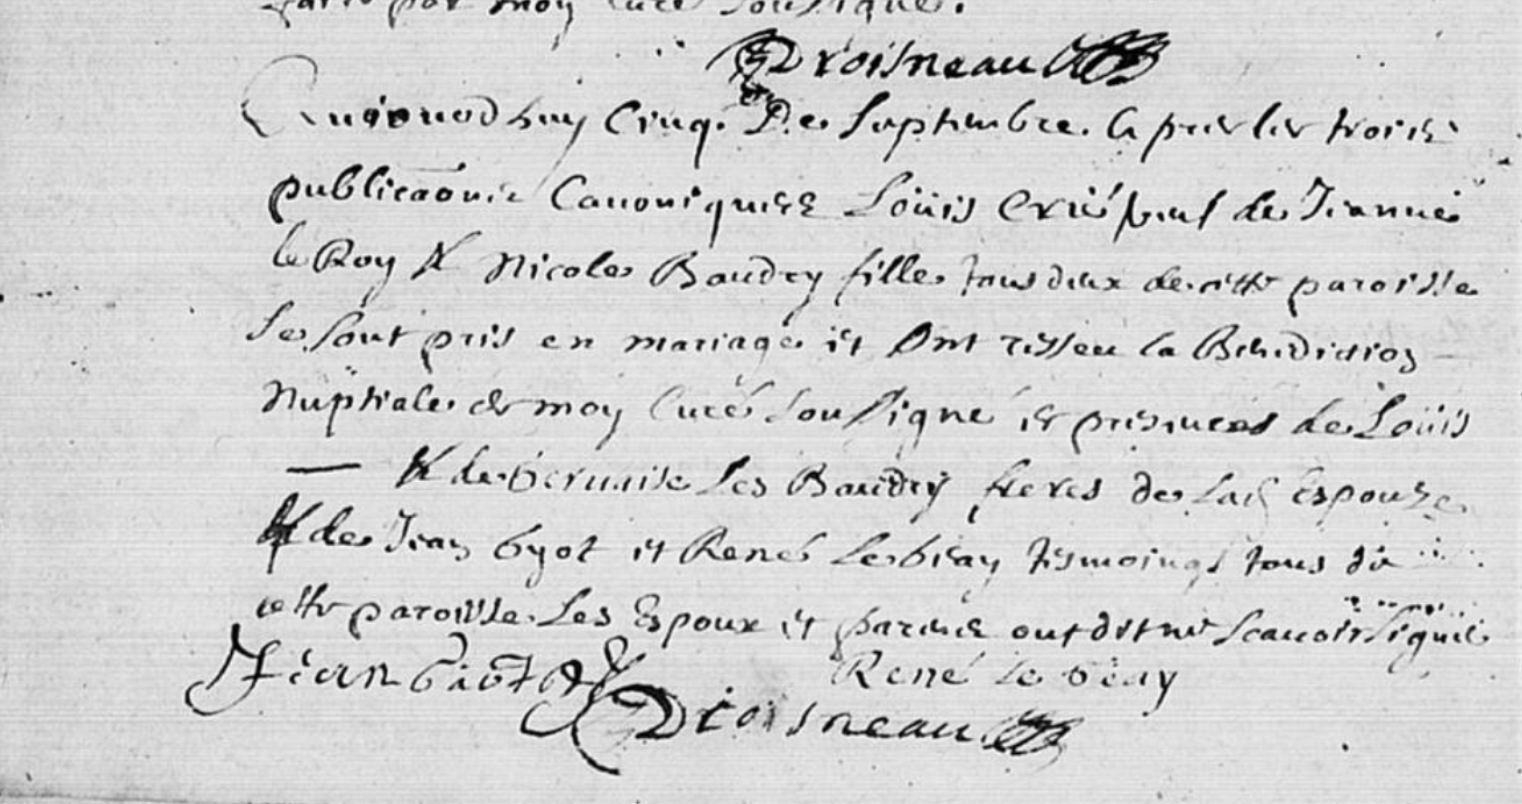 faite par moy Curé soussigné.
Droisneau
Aujourdhuy Cinq. De Septembre. a pres les trois
publicaõns Canoniques Loüis veuf de Jeanne
le Roy & Nicole Baudry fille tous deux de cette paroisse
se sont pris en mariage et Ont resseu la Benediction
Nuptiale de moy Curé soussigné et presences de Loüis
— & de Les Baudry freres de lad Espouse
& de Jean Gyot et René tesmoings tous de
cette paroisse. Les Espoux et parens ont dit ne scauoir signer
Jean
René
Droisneau